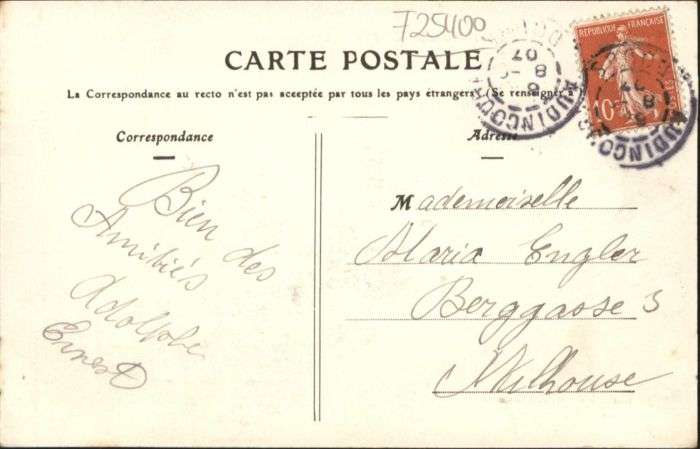 F25400
CARTE POSTALE
La Correspondance au recto n'est pas acceptée par tous les pays étrangers (Se renseigner à
Correspondance
Adresse
REPUBLIQUE FRANÇAISE
10
07
8
AUDINCOURT
Bien des
Amitiés
Adolphe
Ernest
Mademoiselle
Maria Engler
Berggasse 3
Mulhouse